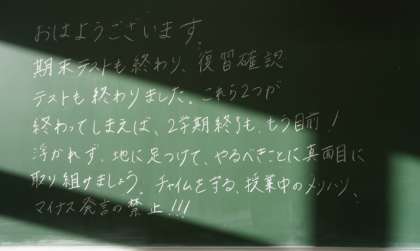 おはようございます。
期末テストも終わり、復習確認
テストも終わりました。これら2つが
終わってしまえば、2学期終了も、もう目前！
浮かれず、地に足つけて、やるべきことに真面目に
取り組みましょう。チャイムを守る、授業中のメリハリ、
マイナス発言の禁止!!!